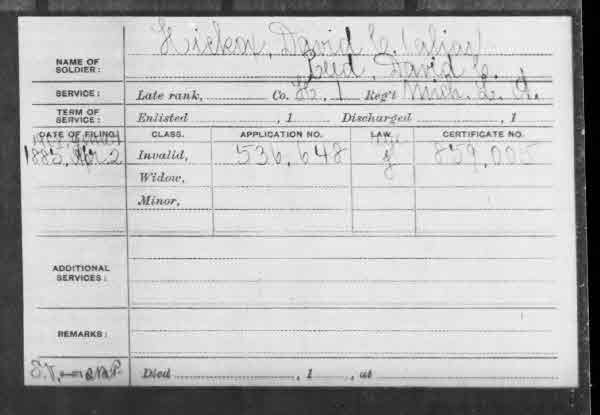 David C. (alias
NAME OF SOLDIER: Reid, David C.
SERVICE: Late rank, Co. 1 Reg't Mich. L. A.
TERM OF SERVICE: Enlisted , 1 Discharged , 1
DATE OF FILING. CLASS. APPLICATION NO. LAW. CERTIFICATE NO.
1885, Apr. 2 Invalid, 536,648 859,005
Widow,
Minor,
ADDITIONAL SERVICES:
REMARKS:
Died , 1 , at